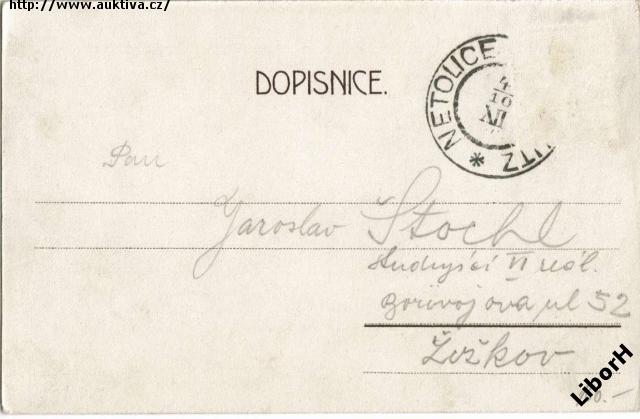 http://www.auktiva.cz/
DOPISNICE.
NETOLICE
4
10
XII
TZ *
Pan
Jaroslav Štochl
Studující VI reál.
Bořivojova ul 52
Žižkov
LiborH